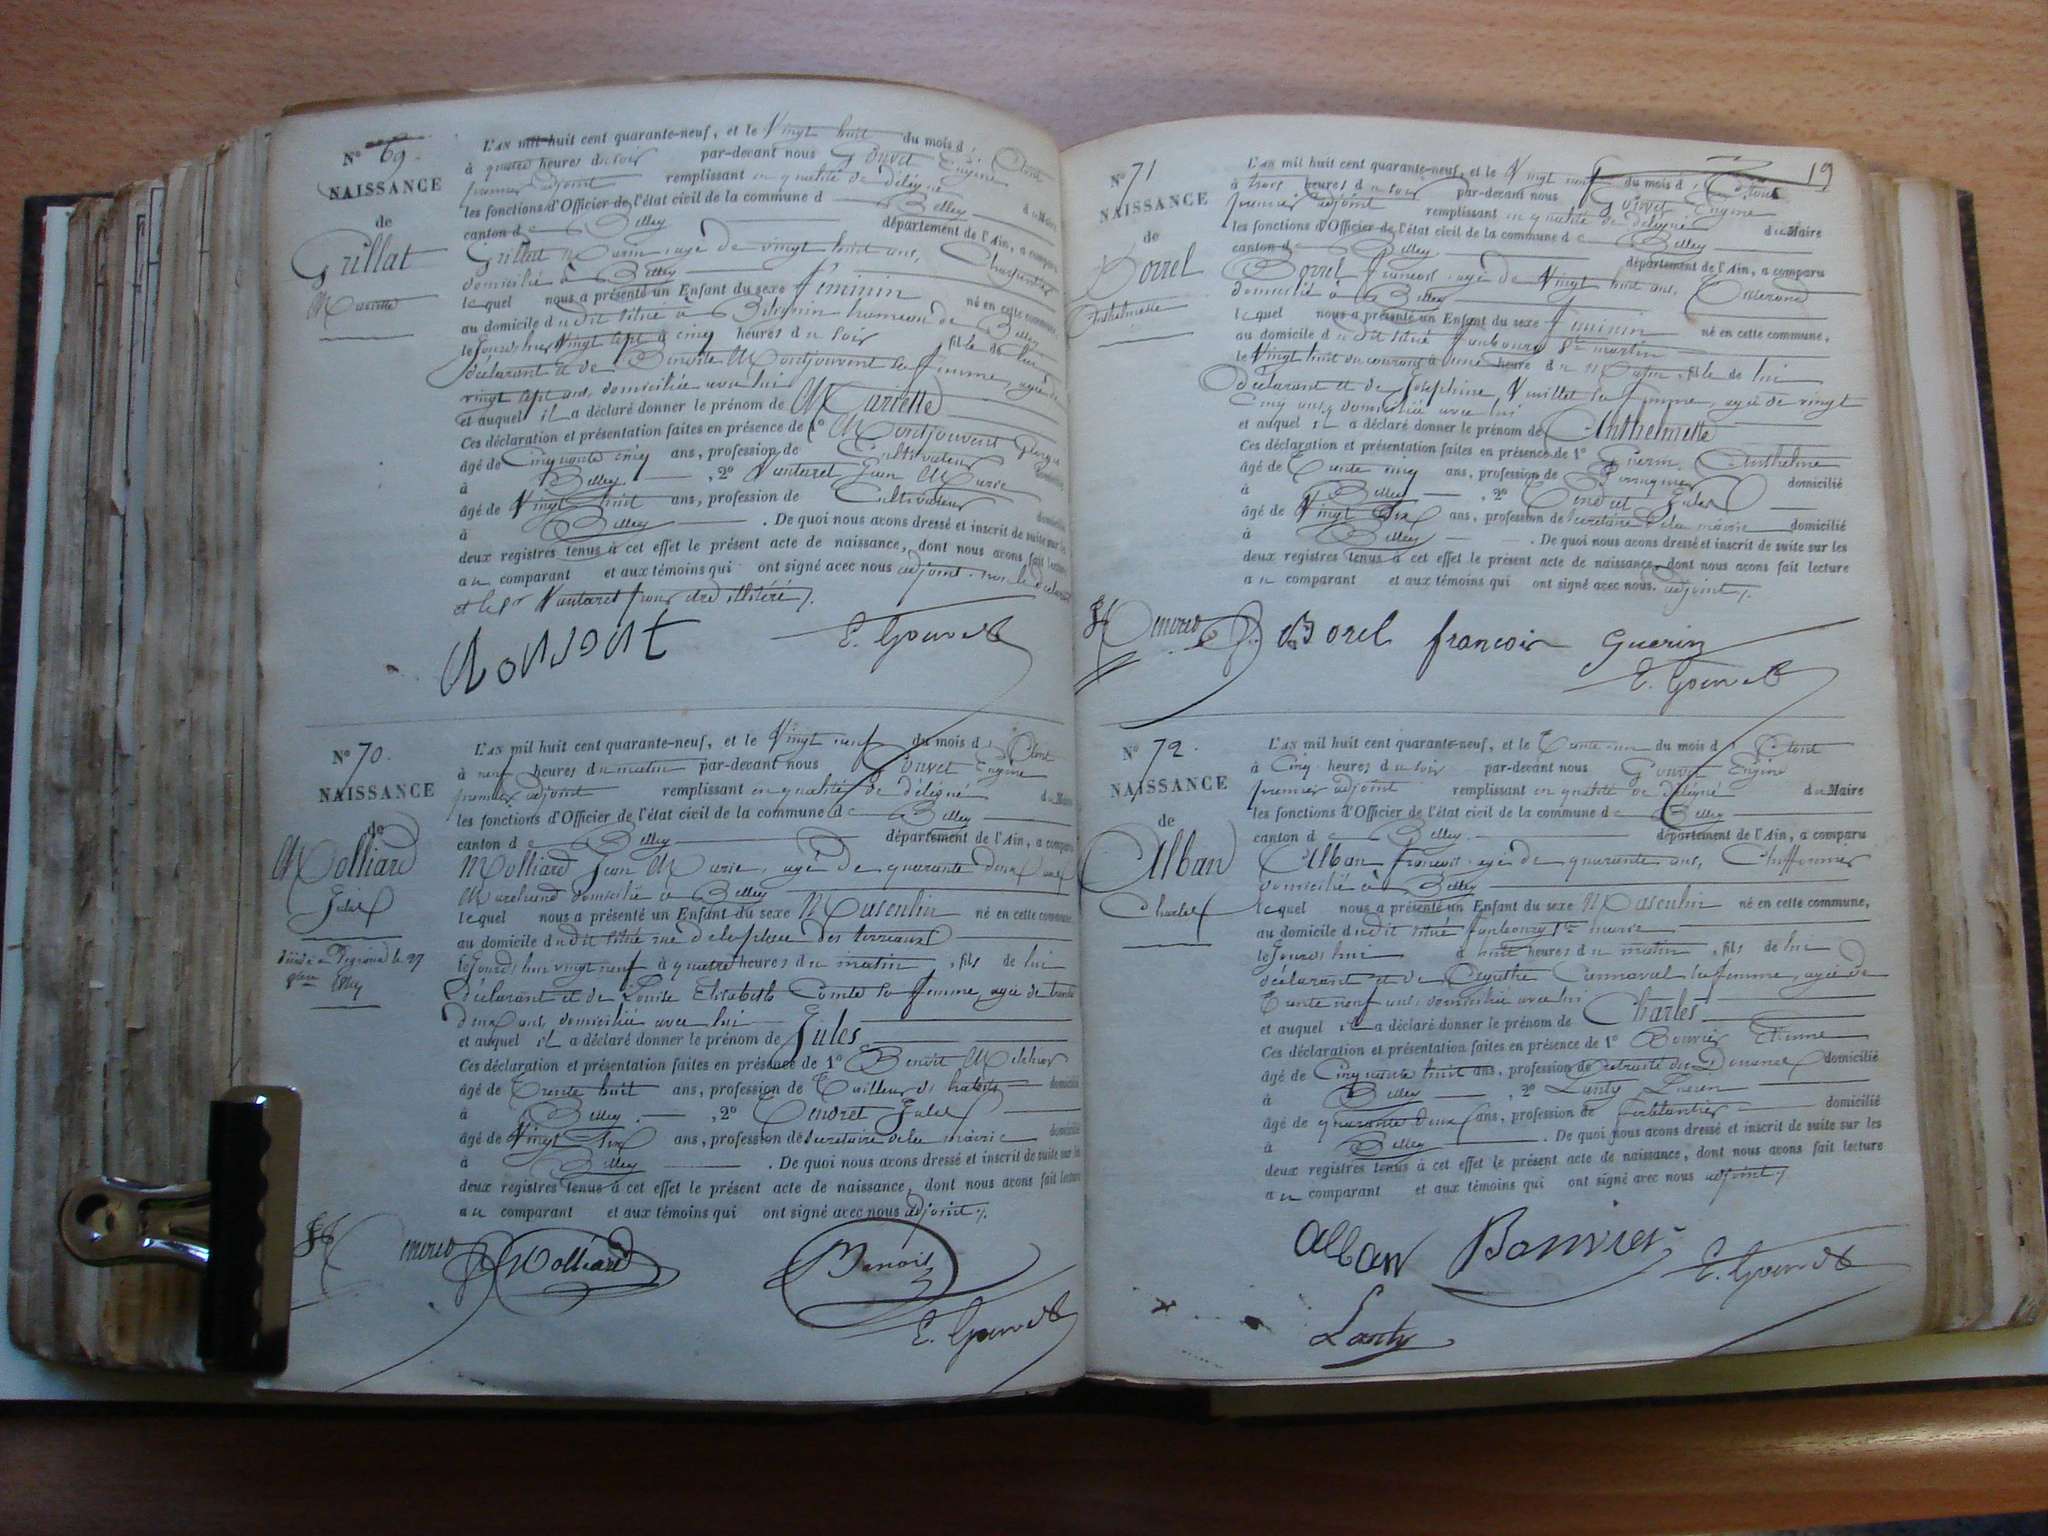 N° 69.
NAISSANCE
de
Grillat
Mariette
L'AN mil huit cent quarante-neuf, et le Vingt huit du mois d' Aout
à quatre heures du soir par-devant nous Gouvet Eugène
premier adjoint remplissant en qualité de délégué
les fonctions d'Officier de l'état civil de la commune d e Belley du Maire
canton d e Belley département de l'Ain, a comparu
Grillat agé de vingt huit ans, Charpentier
domicilié à Belley
lequel nous a présenté un Enfant du sexe féminin né en cette commune,
au domicile du dit situé à Bilignin hameau de Belley
le Jourd'hui vingt sept à cinq heures du soir fille de lui
déclarant et de Benoite Montjouvent sa femme, agée de
vingt sept ans, domiciliée avec lui
et auquel il a déclaré donner le prénom de Mariette
Ces déclaration et présentation faites en présence de 1° Montjouvent
âgé de Cinquante cinq ans, profession de Cultivateur domicilié
à Belley , 2° Vautaret Jean Marie
âgé de Vingt huit ans, profession de Cultivateur domicilié
à Belley . De quoi nous avons dressé et inscrit de suite sur les
deux registres tenus à cet effet le présent acte de naissance, dont nous avons fait lecture
au comparant et aux témoins qui ont signé avec nous adjoint, non le déclarant
et le Sr Vautaret pour être illitéré /.
E. Gouvet
N° 70.
NAISSANCE
de
Molliard
Jules
L'AN mil huit cent quarante-neuf, et le Vingt neuf du mois d' Aout
à neuf heures du matin par-devant nous Gouvet Eugène
premier adjoint remplissant en qualité de délégué du Maire
les fonctions d'Officier de l'état civil de la commune d e Belley
canton d e Belley département de l'Ain, a comparu
Molliard Jean Marie, agé de quarante deux ans
Marchand domicilié à Belley
lequel nous a présenté un Enfant du sexe Masculin né en cette commune,
au domicile du dit situé rue de la place des terreaux
le Jourd'hui vingt neuf à quatre heures du matin , fils de lui
déclarant et de Louise Elisabeth Comte sa femme, agée de trente
deux ans, domiciliée avec lui
et auquel il a déclaré donner le prénom de Jules
Ces déclaration et présentation faites en présence de 1° Benoit Melchior
âgé de Trente huit ans, profession de Tailleur d'habits domicilié
à Belley , 2° Cendret Jules
âgé de Vingt Six ans, profession de Secrétaire de la mairie domicilié
à Belley . De quoi nous avons dressé et inscrit de suite sur les
deux registres tenus à cet effet le présent acte de naissance, dont nous avons fait lecture
au comparant et aux témoins qui ont signé avec nous adjoint /.
Molliard Benoit
E. Gouvet
19
N° 71
NAISSANCE
de
Borrel
Anthelmette
L'AN mil huit cent quarante-neuf, et le Vingt neuf du mois d' Aout
à trois heures du soir par-devant nous Gouvet Eugène
premier adjoint remplissant en qualité de délégué du Maire
les fonctions d'Officier de l'état civil de la commune d e Belley
canton d e Belley département de l'Ain, a comparu
Borrel François, agé de Vingt huit ans,
domicilié à Belley
lequel nous a présenté un Enfant du sexe féminin né en cette commune,
au domicile du dit situé faubourg St martin
le Vingt huit du courant à onze heure du Matin , fille de lui
déclarant et de Joséphine Vuillet sa femme, agée de vingt
Cinq ans, domiciliée avec lui
et auquel il a déclaré donner le prénom de Anthelmette
Ces déclaration et présentation faites en présence de 1° Guerin Anthelme
âgé de Trente cinq ans, profession de Perruquier domicilié
à Belley , 2° Cendret Jules
âgé de Vingt Six ans, profession de Secrétaire de la mairie domicilié
à Belley . De quoi nous avons dressé et inscrit de suite sur les
deux registres tenus à cet effet le présent acte de naissance, dont nous avons fait lecture
au comparant et aux témoins qui ont signé avec nous. adjoint /.
Borel françois Guerin
E. Gouvet
N° 72.
NAISSANCE
de
Alban
Charles
L'AN mil huit cent quarante-neuf, et le Trente-un du mois d' Aout
à Cinq heures du soir par-devant nous Gouvet Eugène
premier adjoint remplissant en qualité de délégué du Maire
les fonctions d'Officier de l'état civil de la commune d e Belley
canton d e Belley département de l'Ain, a comparu
Alban François, agé de quarante ans, Chiffonnier
domicilié à Belley
lequel nous a présenté un Enfant du sexe Masculin né en cette commune,
au domicile du dit situé faubourg Ste marie
le Jourd'hui à huit heures du matin , fils de lui
déclarant et de sa femme, agée de
Trente neuf ans, domiciliée avec lui
et auquel il a déclaré donner le prénom de Charles
Ces déclaration et présentation faites en présence de 1° Bouvier Etienne
âgé de Cinquante huit ans, profession de Retraité des Douanes domicilié
à Belley , 2° Lanty
âgé de quarante deux ans, profession de ferblantier domicilié
à Belley . De quoi nous avons dressé et inscrit de suite sur les
deux registres tenus à cet effet le présent acte de naissance, dont nous avons fait lecture
au comparant et aux témoins qui ont signé avec nous adjoint /.
alban Bouvier
E. Gouvet
Lanty